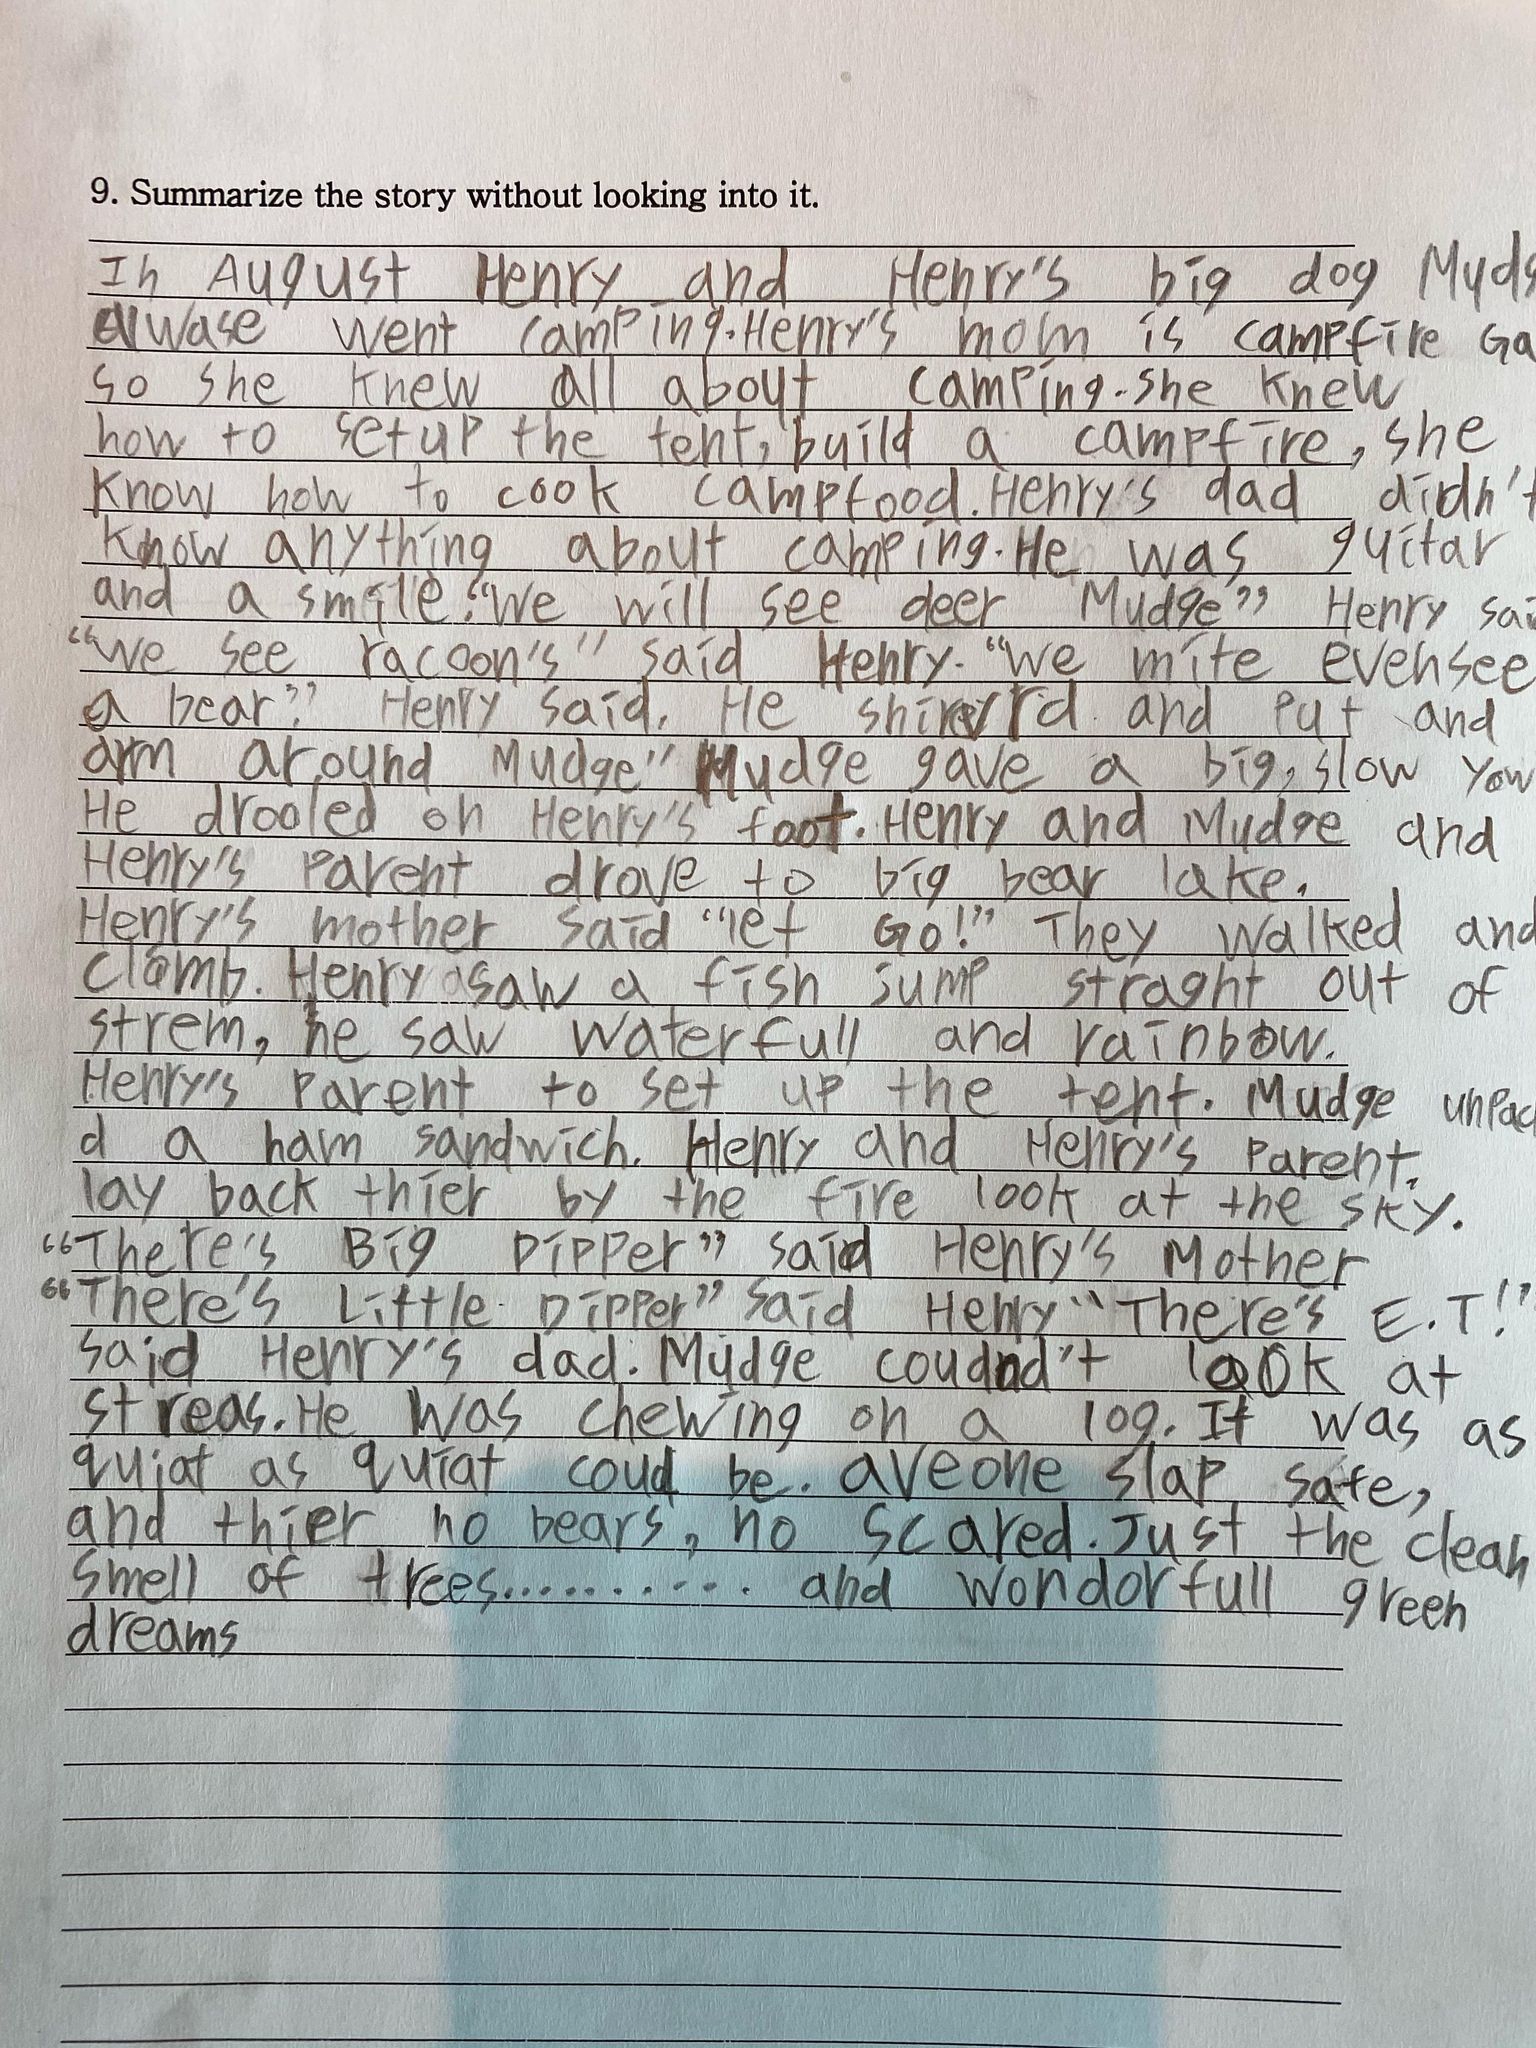 9. Summarize the story without looking into it.
In August Henry and Henry's big dog
alwase went camping. Henry's mom is campfire Ga
so she knew all about camping. she knew
how to setup the tent, build a campfire, she
know how to cook campfood. Henry's dad didn't
know anything about camping. He was guitar
and a smile. "We will see deer Mudge" Henry sai
"We see racoon's" said Henry. "We mite evensee
a bear?" Henry said. He and put and
arm around Mudge" Mudge gave a big, slow yow
He drooled on Henry's foot. Henry and Mudge and
Henry's parent drove to big bear lake.
Henry's mother said "let Go!" They walked and
clamb. Henry saw a fish jump straght out of
strem, he saw waterfull and rainbow.
Henry's parent to set up the tent. Mudge unpac
d a ham sandwich. Henry and Henry's parent.
lay back thier by the fire look at the sky.
"There's Big Dipper" said Henry's Mother
"There's Little Dipper" said Henry "There's E.T!"
said Henry's dad. Mudge look at
streas. He was chewing on a log. It was as
quiat as quiat coud be. aveone slap safe,
and thier no bears, no scared. Just the clean
smell of trees.......... and wondorfull green
dreams